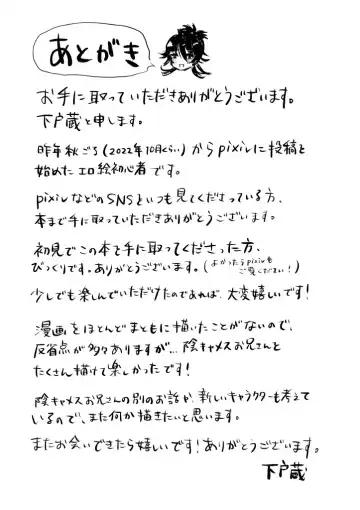 あとがき
お手に取っていただきありがとうございます。
下戸蔵と申します。
昨年秋ごろ(2022年10月くらい)からpixivに投稿を
始めたエロ絵初心者です。
pixivなどのSNSをいつも見てくださっている方、
本まで手に取っていただきありがとうございます。
初見でこの本を手に取ってくださった方、
びっくりです。ありがとうございます。(よかったらpixivも
ご覧ください！)
少しでも楽しんでいただけたのであれば、大変嬉しいです！
漫画をほとんどまともに描いたことがないので、
反省点が多々ありますが…陰キャメスお兄さんを
たくさん描けて楽しかったです！
陰キャメスお兄さんの別のお話や、新しいキャラクターも考えて
いるので、また何か描きたいと思います。
またお会いできたら嬉しいです！ありがとうございます。
下戸蔵